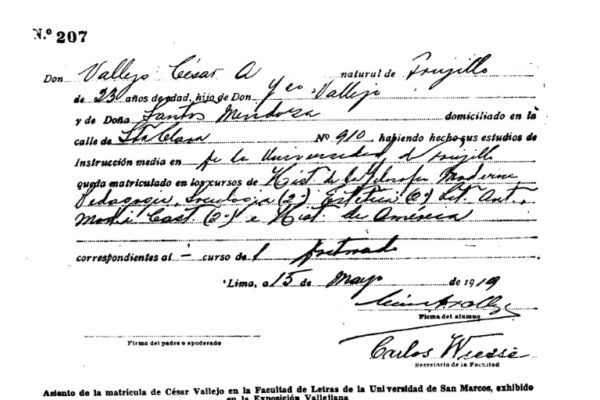 N.º 207
Don Vallejo César A natural de Trujillo
de 23 años de edad, hijo de Don Vallejo
y de Doña Santos Mendoza domiciliado en la
calle de Sta Clara Nº 910 habiendo hecho sus estudios de
Instrucción media en la Universidad d Trujillo
queda matriculado en los cursos de Hist de la Filosofía Moderna
Pedagogía, Sociología (2º) Estética (2º) Lit. Ant.
Cast (2º) e Hist. de América
correspondientes al - curso de
Lima, a 15 de Mayo de 1919
Firma del alumno
Firma del padre o apoderado
Carlos Wiesse
Secretario de la Facultad
Asiento de la matrícula de César Vallejo en la Facultad de Letras de la Universidad de San Marcos, exhibido
en la Exposición Vallejiana